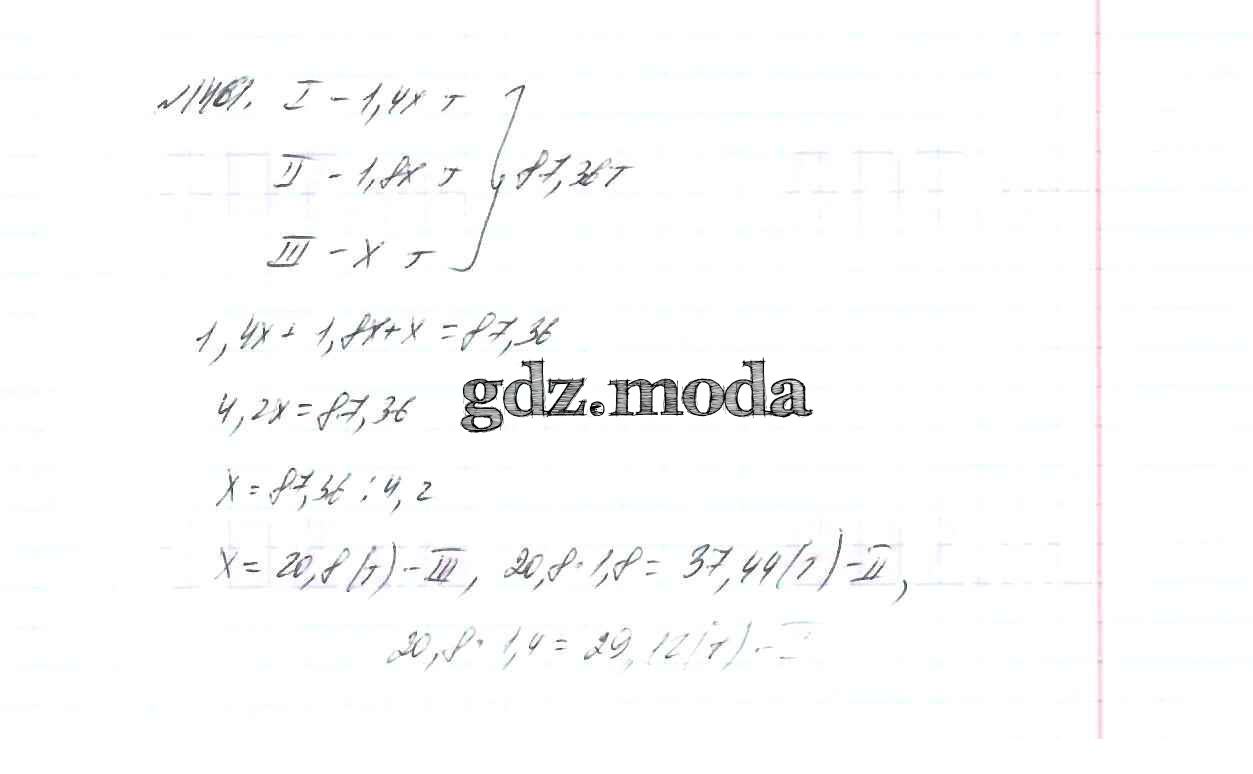 №1461. I - 1,4x т
II - 1,8x т } 87,36 т
III - x т
1,4x + 1,8x + x = 87,36
4,2x = 87,36
gdz.moda
x = 87,36 : 4,2
x = 20,8 (т) - III, 20,8 · 1,8 = 37,44 (т) - II,
20,8 · 1,4 = 29,12 (т) - I